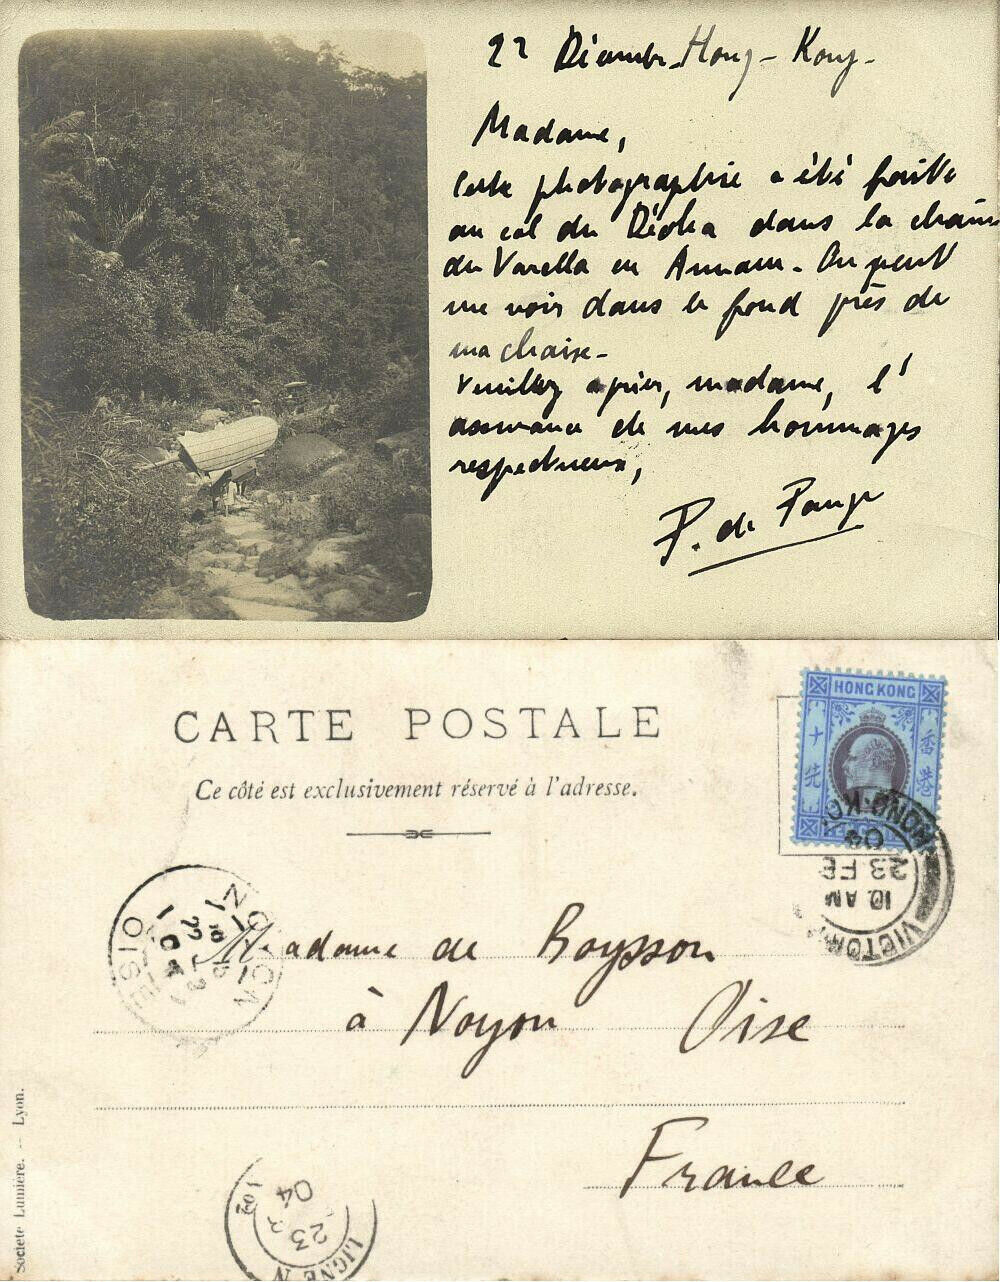 22 Décembre Hong-Kong-
Madame,
Cette photographie a été faite
au col du Déoka dans la chaîne
du Varella en Annam. On peut
me voir dans le fond près de
ma chaise-
Veuillez agréer, madame, l'
assurance de mes hommages
respectueux,
P. de Pange
CARTE POSTALE
Ce côté est exclusivement réservé à l'adresse.
HONG KONG
十
先
香
港
HONG-KO
04
23 FE
10 AM
VICTOR
NOYON
OISE
04
Madame de Boysson
à Noyon Oise
France
Société Lumière. — Lyon.
LIGNE N
23
04